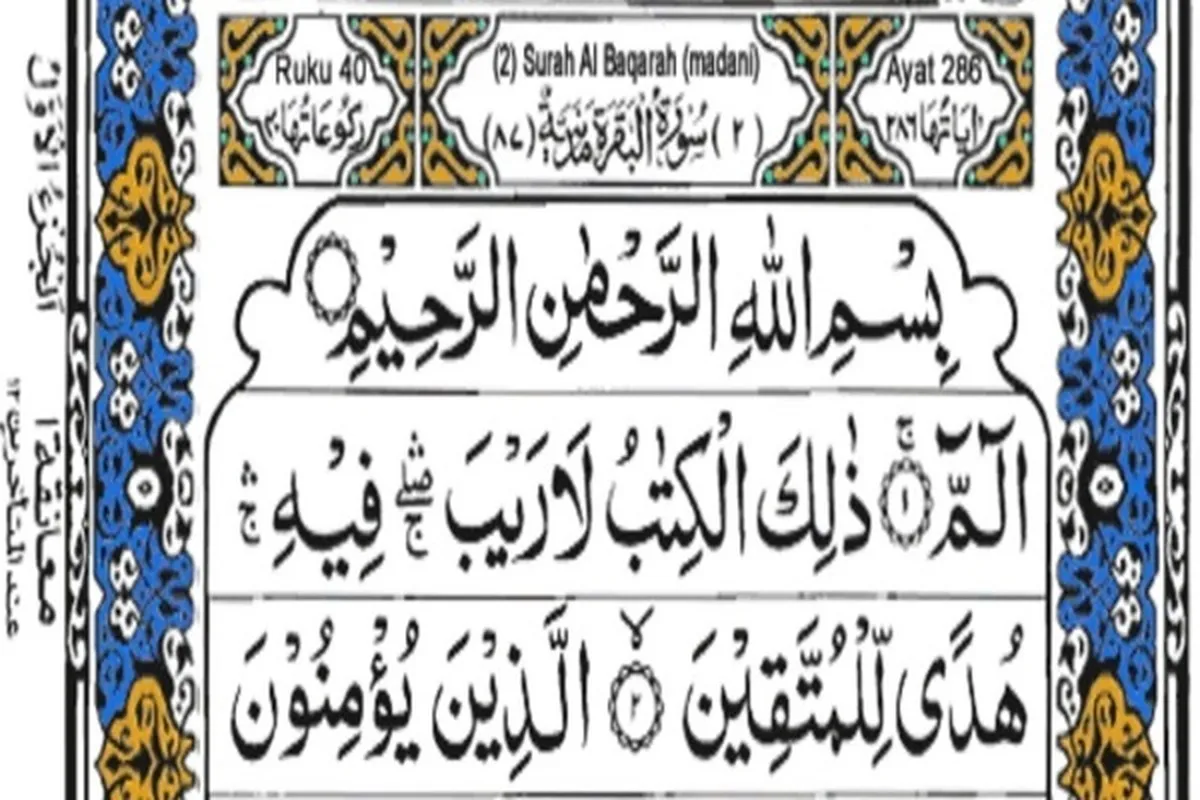 Ruku 40
(2) Surah Al Baqarah (madani)
Ayat 286
رُكُوْعَاتُهَا ٤٠
(٢) سُوْرَةُ الْبَقَرَةِ مَدَنِيَّةٌ (٨٧)
اٰيَاتُهَا ٢٨٦
بِسْمِ اللّٰهِ الرَّحْمٰنِ الرَّحِيْمِ
الٓمّٓ ۚ ﴿١﴾ ذٰلِكَ الْكِتٰبُ لَا رَيْبَ ۖۛۚ فِيْهِ ۛۚ
هُدًى لِّلْمُتَّقِيْنَ ۙ ﴿٢﴾ الَّذِيْنَ يُؤْمِنُوْنَ
اَلْجُزْءُ الْاَوَّلُ
معانقة ١